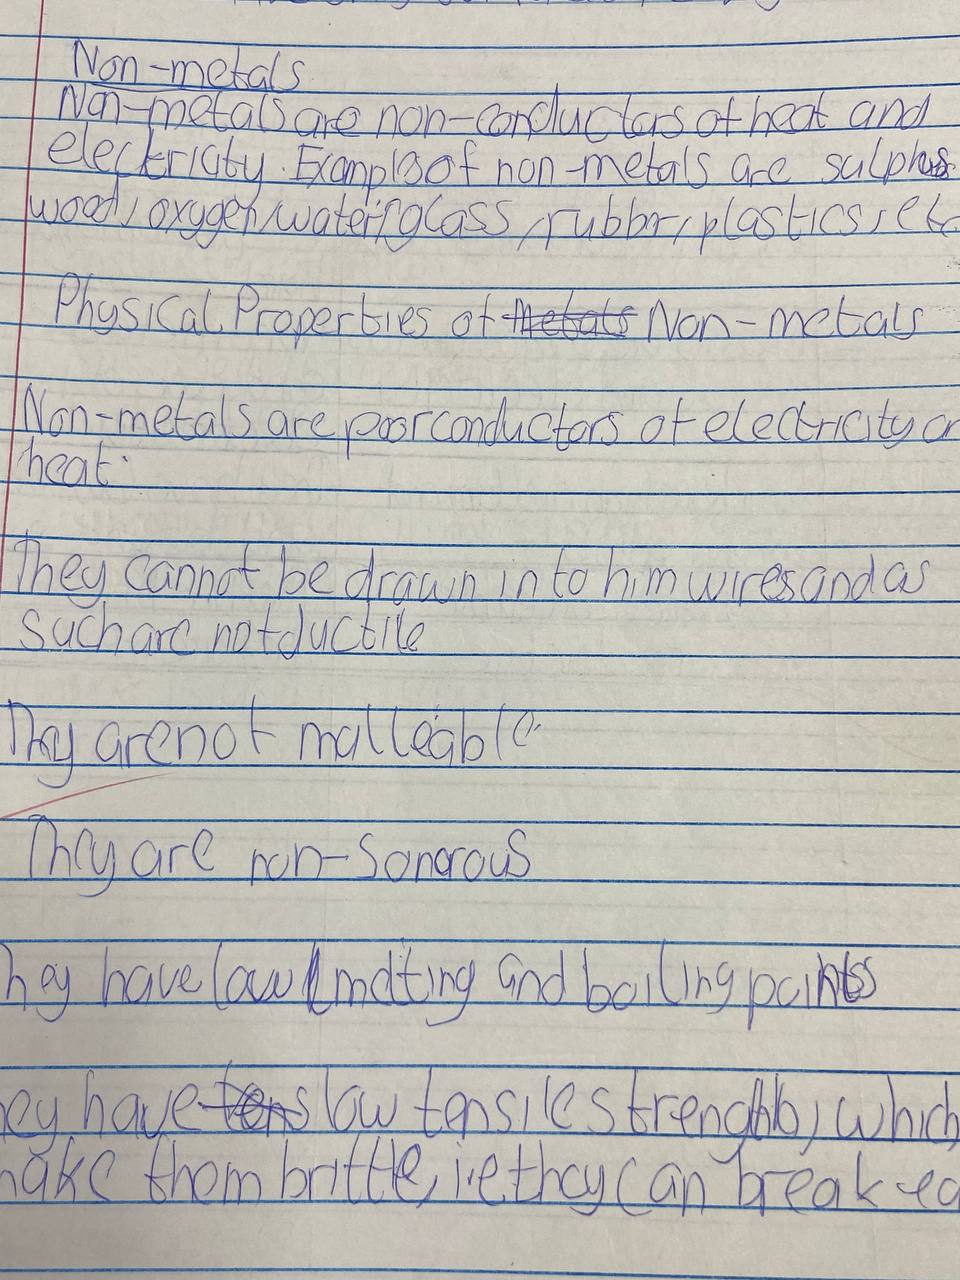 Non-metals
Non-metals are non-conductors of heat and
electricity. Examples of non-metals are sulphur
wood, oxygen, water, glass, rubber, plastics, etc
Physical Properties of Metals Non-metals
Non-metals are poor conductors of electricity or
heat.
They cannot be drawn in to him wires and as
such are not ductile
They are not malleable.
They are non-sonorous
hey have low melting and boiling points
ey have tens low tensile strength, which
make them brittle, i.e they can break ea